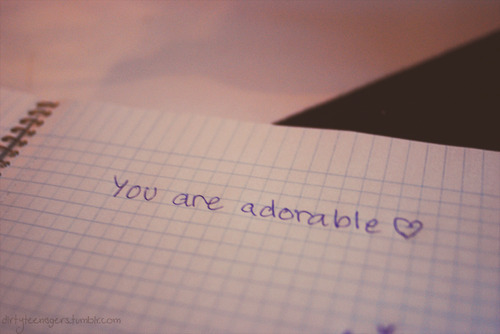 You are adorable ♡
dirtyteenagers.tumblr.com